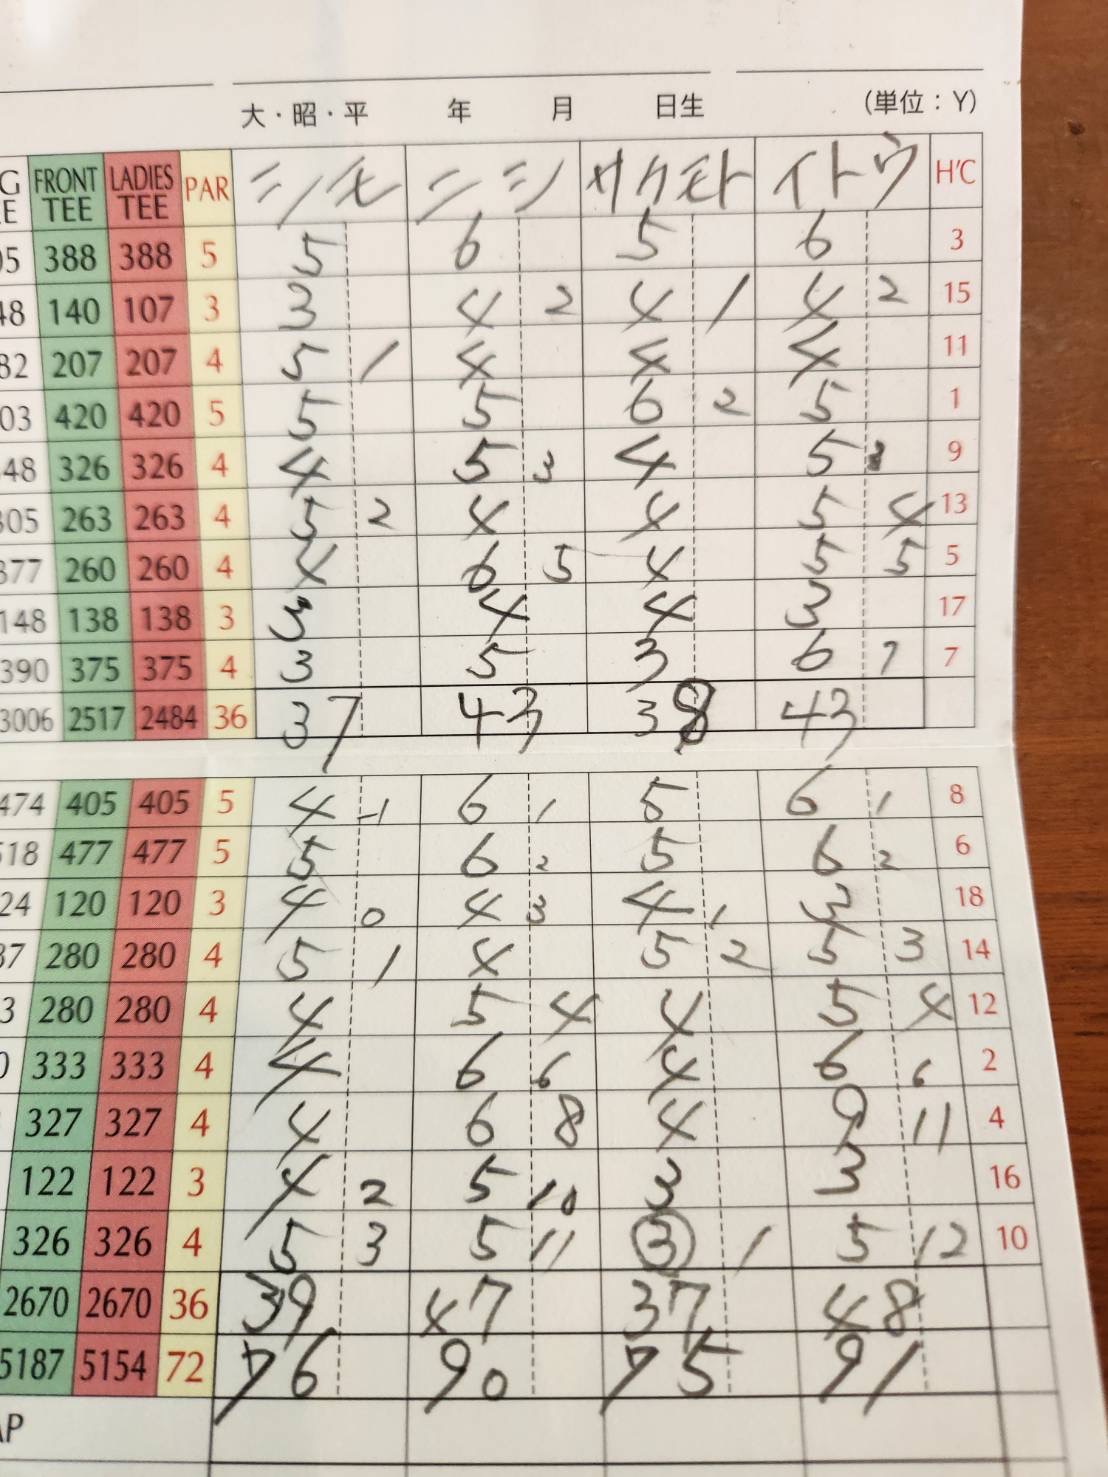 大・昭・平 年 月 日生 (単位：Y)
FRONT TEE LADIES TEE PAR ニシ サカモト イトウ H'C
388 388 5 5 6 5 6 3
140 107 3 3 4 2 4 1 4 2 15
82 207 207 4 5 1 4 4 4 11
03 420 420 5 5 5 6 2 5 1
48 326 326 4 4 5 3 4 5 9
305 263 263 4 5 2 4 4 5 4 13
377 260 260 4 4 6 5 4 5 5 5
148 138 138 3 3 4 4 3 17
390 375 375 4 3 5 3 6 7 7
3006 2517 2484 36 37 43 38 43
474 405 405 5 4 -1 6 1 5 6 1 8
518 477 477 5 5 6 2 5 6 2 6
24 120 120 3 4 0 4 3 4 1 3 18
37 280 280 4 5 1 4 5 2 5 3 14
3 280 280 4 4 5 4 4 5 4 12
0 333 333 4 4 6 6 4 6 6 2
327 327 4 4 6 8 4 9 11 4
122 122 3 4 2 5 10 3 3 16
326 326 4 5 3 5 11 3 1 5 12 10
2670 2670 36 39 47 37 48
5187 5154 72 76 90 75 91
AP